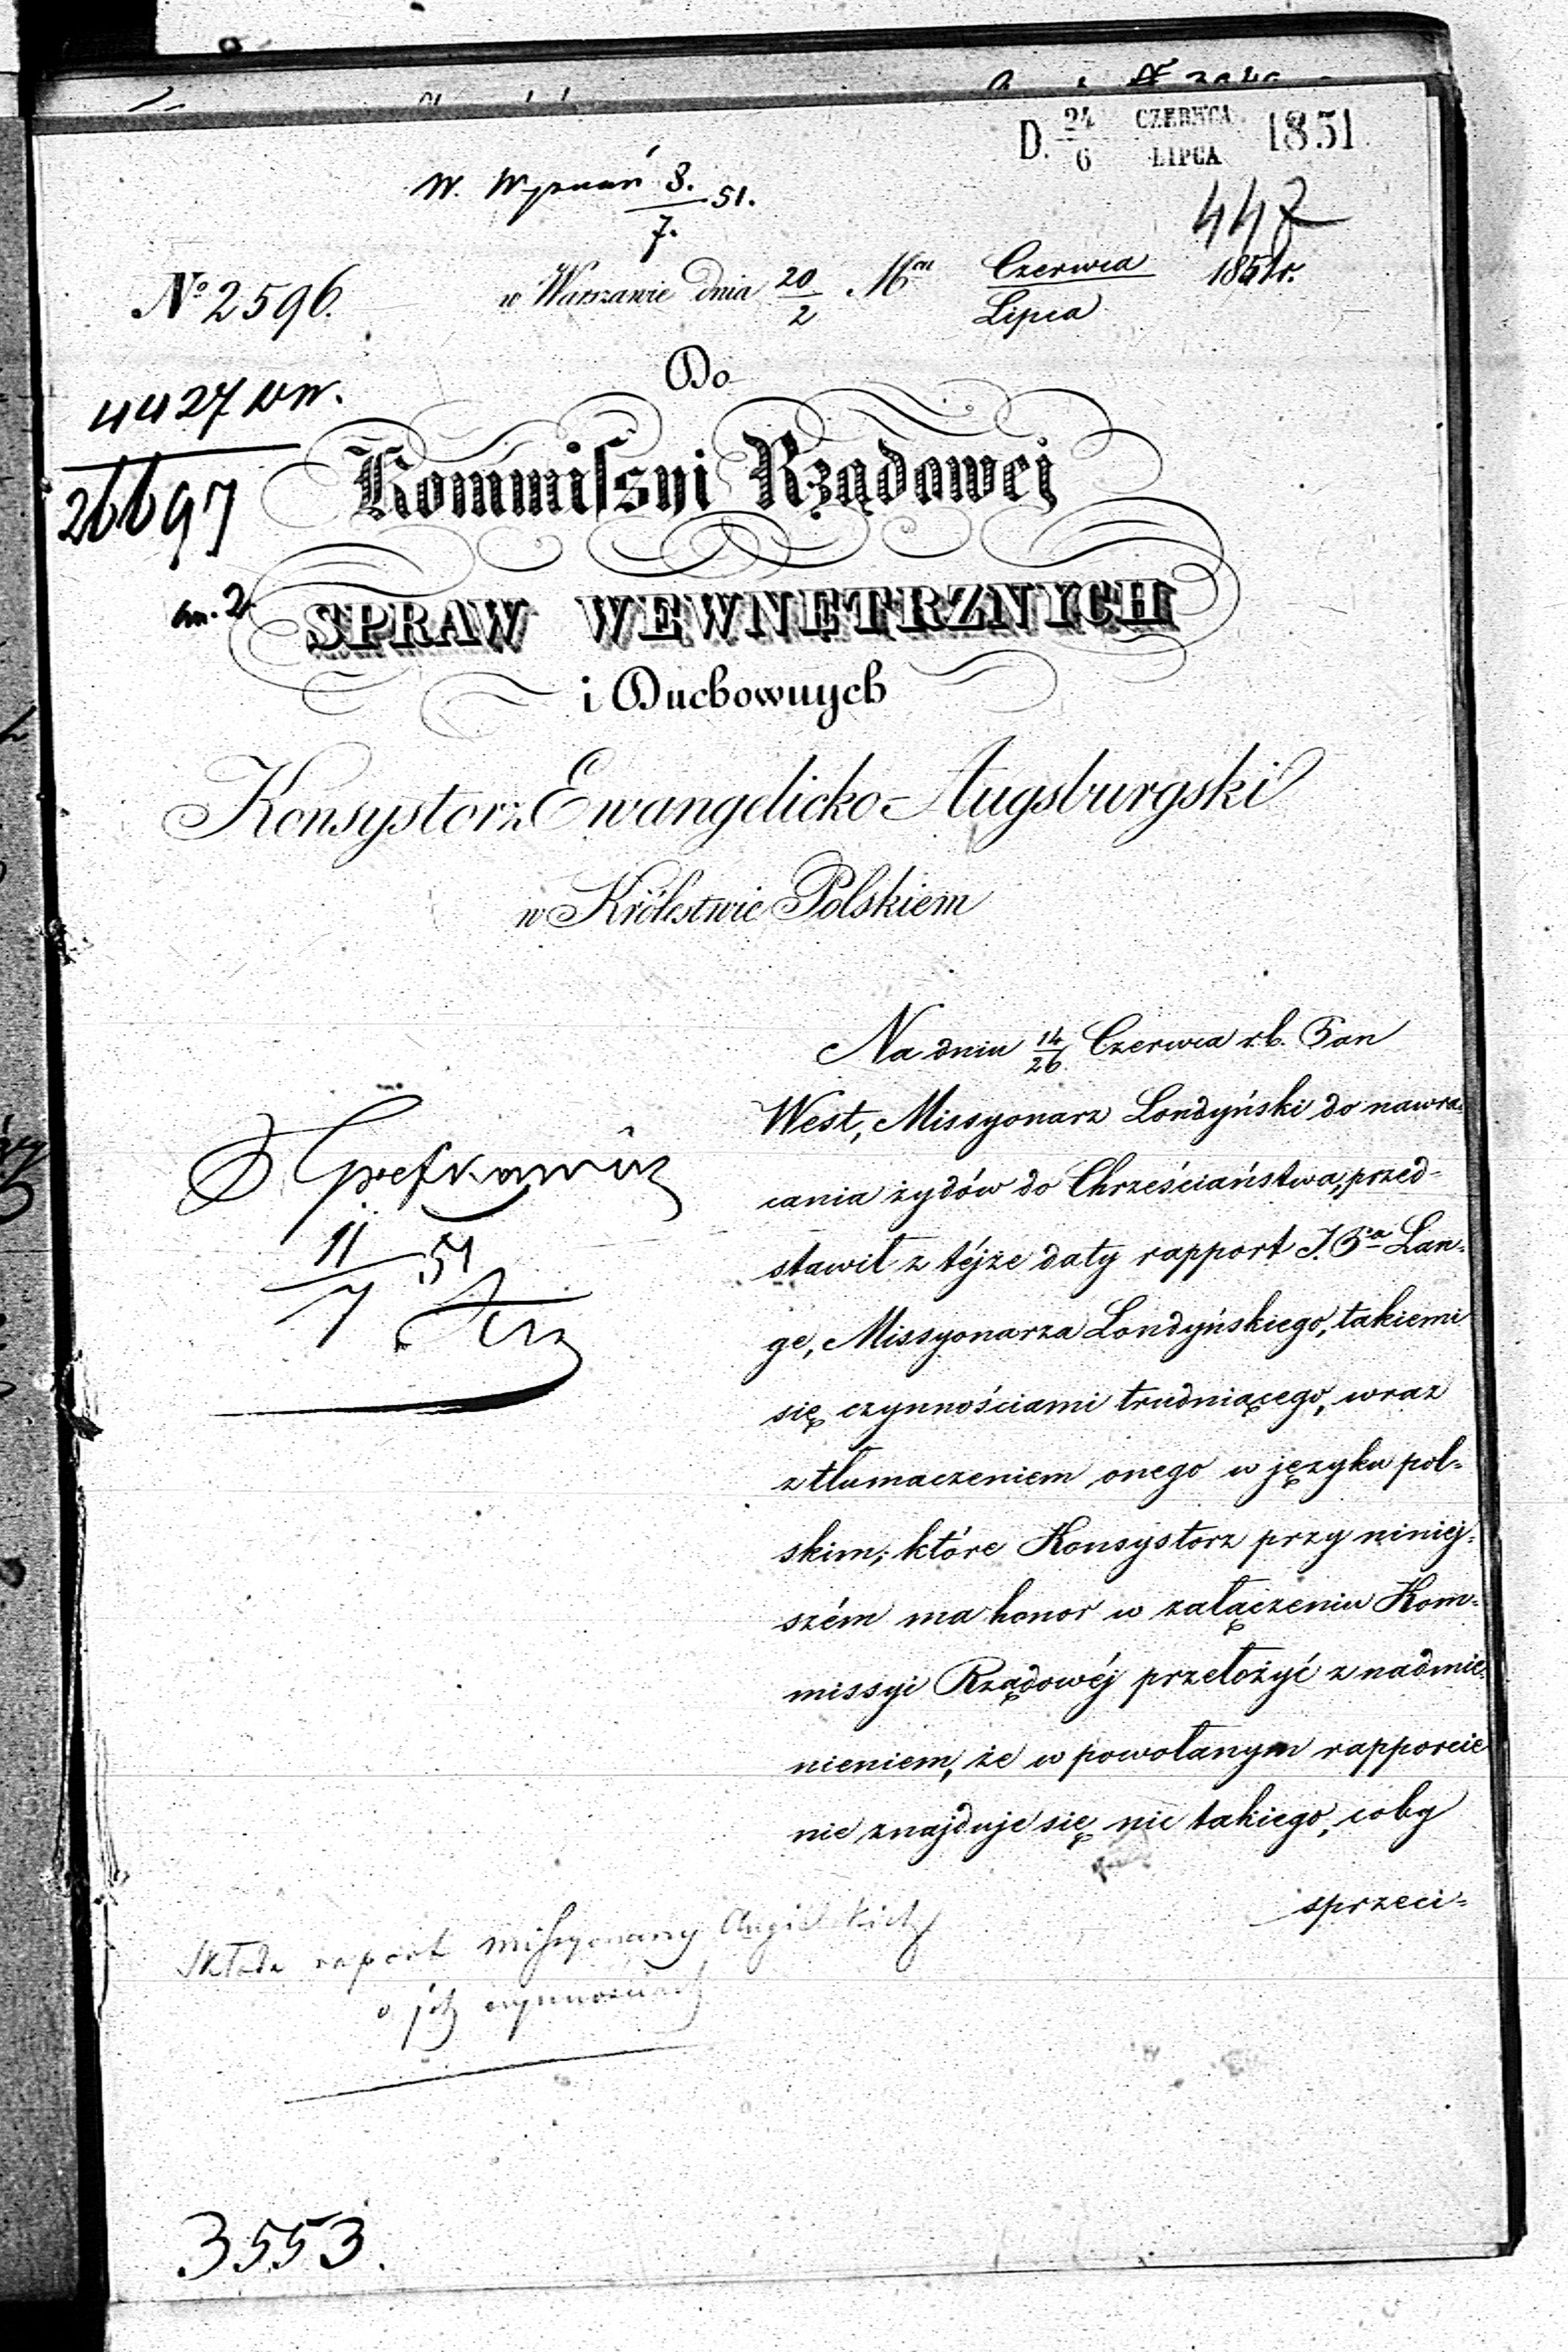 D. 24/6 CZERWCA/LIPCA 1851
W. Wyznań 8./7. 51.
447
№ 2596.
w Warszawie dnia 20/2 Mca Czerwca/Lipca 1851 r.
4427 wn.
26697
an. 2.
Do
Kommiſsyi Rządowej
SPRAW WEWNĘTRZNYCH
i Duchownych
Konsystorz Ewangelicko-Augsburgski
w Królestwie Polskiem
Na dniu 14/26 Czerwca r.b. Pan
West, Missyonarz Londyński do nawra-
cania żydów do Chrześciaństwa, przed-
stawił z téjże daty rapport J. Pa Lan-
ge, Missyonarza Londyńskiego, takiemi
się czynnościami trudniącego, wraz
z tłumaczeniem onego w języku pol-
skim; które Konsystorz przy niniej-
szém ma honor w załączeniu Kom-
missyi Rządowéj przełożyć z nadmie-
nieniem, że w powołanym rapporcie
nie znajduje się nic takiego, coby
sprzeci-
11/7 51
Składa raport miſsyonarzy Angielskich
o ich czynnościach
3553.